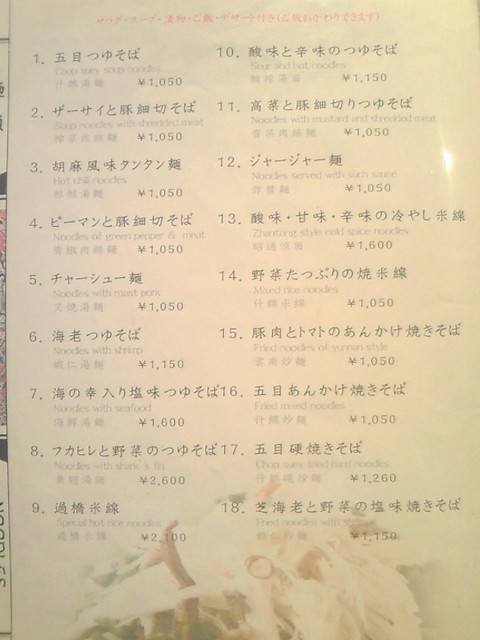 スープ・漬物・ご飯・デザート付き(ご飯おかわりできます)
1. 五目つゆそば
Chop suey soup noodles
什錦湯麺 ¥1,050
2. ザーサイと豚細切そば
Soup noodles with shredded meat
搾菜肉絲麺 ¥1,050
3. 胡麻風味タンタン麺
Hot chili noodles
担担湯麺 ¥1,050
4. ピーマンと豚細切そば
Noodles of green pepper & meat
青椒肉絲麺 ¥1,050
5. チャーシュー麺
Noodles with roast pork
叉焼湯麺 ¥1,050
6. 海老つゆそば
Noodles with shrimp
蝦仁湯麺 ¥1,150
7. 海の幸入り塩味つゆそば
Noodles with seafood
海鮮湯麺 ¥1,600
8. フカヒレと野菜のつゆそば
Noodles with shark's fin
湯麺 ¥2,600
9. 過橋米線
Special hot rice noodles
過橋米線 ¥2,100
10. 酸味と辛味のつゆそば
Sour and hot noodles
酸辣湯麺 ¥1,150
11. 高菜と豚細切りつゆそば
Noodles with mustard and shredded meat
雪菜肉絲麺 ¥1,050
12. ジャージャー麺
Noodles served with such sauce
炸醤麺 ¥1,050
13. 酸味・甘味・辛味の冷やし米線
Zhaotong style cold spice noodles
昭通涼面 ¥1,600
14. 野菜たっぷりの焼米線
Mixed rice noodles
什錦米線 ¥1,050
15. 豚肉とトマトのあんかけ焼きそば
Fried noodles of yunnan style
雲南炒麺 ¥1,050
16. 五目あんかけ焼きそば
Fried mixed noodles
什錦炒麺 ¥1,050
17. 五目硬焼きそば
Chop suey fried hard noodles
什錦硬炒麺 ¥1,260
18. 芝海老と野菜の塩味焼きそば
Fried noodles with
蝦仁炒麺 ¥1,150